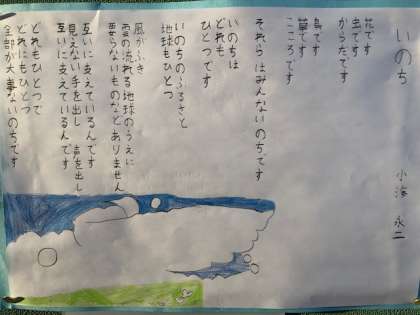 いのち
小海 永二
花です
虫です
からだです
鳥です
草です
こころです
それらはみんないのちです
いのちは
どれも
ひとつです
いのちのふるさと
地球もひとつ
風がふき
雲の流れる地球のうえに
要らないものなどありません
互いに支えているんです
見えない手を出し 声を出し
互いに支えているんです
どれもひとつで
どれにもひとつ
全部が大事ないのちです